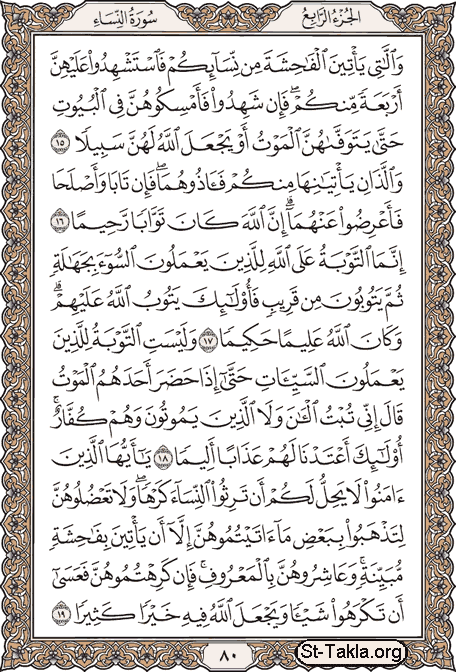 سُورَةُ النِّسَاءِ
الجُزْءُ الرَّابِعُ
وَٱلَّٰتِي يَأْتِينَ ٱلْفَٰحِشَةَ مِن نِّسَآئِكُمْ فَٱسْتَشْهِدُوا۟ عَلَيْهِنَّ
أَرْبَعَةً مِّنكُمْ ۖ فَإِن شَهِدُوا۟ فَأَمْسِكُوهُنَّ فِى ٱلْبُيُوتِ
حَتَّىٰ يَتَوَفَّىٰهُنَّ ٱلْمَوْتُ أَوْ يَجْعَلَ ٱللَّهُ لَهُنَّ سَبِيلًا ١٥
وَٱلَّذَانِ يَأْتِيَٰنِهَا مِنكُمْ فَـَٔاذُوهُمَا ۖ فَإِن تَابَا وَأَصْلَحَا
فَأَعْرِضُوا۟ عَنْهُمَآ ۗ إِنَّ ٱللَّهَ كَانَ تَوَّابًا رَّحِيمًا ١٦
إِنَّمَا ٱلتَّوْبَةُ عَلَى ٱللَّهِ لِلَّذِينَ يَعْمَلُونَ ٱلسُّوٓءَ بِجَهَٰلَةٍ
ثُمَّ يَتُوبُونَ مِن قَرِيبٍ فَأُو۟لَٰٓئِكَ يَتُوبُ ٱللَّهُ عَلَيْهِمْ ۗ
وَكَانَ ٱللَّهُ عَلِيمًا حَكِيمًا ١٧ وَلَيْسَتِ ٱلتَّوْبَةُ لِلَّذِينَ
يَعْمَلُونَ ٱلسَّيِّـَٔاتِ حَتَّىٰٓ إِذَا حَضَرَ أَحَدَهُمُ ٱلْمَوْتُ
قَالَ إِنِّى تُبْتُ ٱلْـَٰٔنَ وَلَا ٱلَّذِينَ يَمُوتُونَ وَهُمْ كُفَّارٌ ۚ
أُو۟لَٰٓئِكَ أَعْتَدْنَا لَهُمْ عَذَابًا أَلِيمًا ١٨ يَٰٓأَيُّهَا ٱلَّذِينَ
ءَامَنُوا۟ لَا يَحِلُّ لَكُمْ أَن تَرِثُوا۟ ٱلنِّسَآءَ كَرْهًا ۖ وَلَا تَعْضُلُوهُنَّ
لِتَذْهَبُوا۟ بِبَعْضِ مَآ ءَاتَيْتُمُوهُنَّ إِلَّآ أَن يَأْتِينَ بِفَٰحِشَةٍ
مُّبَيِّنَةٍ ۚ وَعَاشِرُوهُنَّ بِٱلْمَعْرُوفِ ۚ فَإِن كَرِهْتُمُوهُنَّ فَعَسَىٰٓ
أَن تَكْرَهُوا۟ شَيْـًٔا وَيَجْعَلَ ٱللَّهُ فِيهِ خَيْرًا كَثِيرًا ١٩
٨٠
St-Takla.org